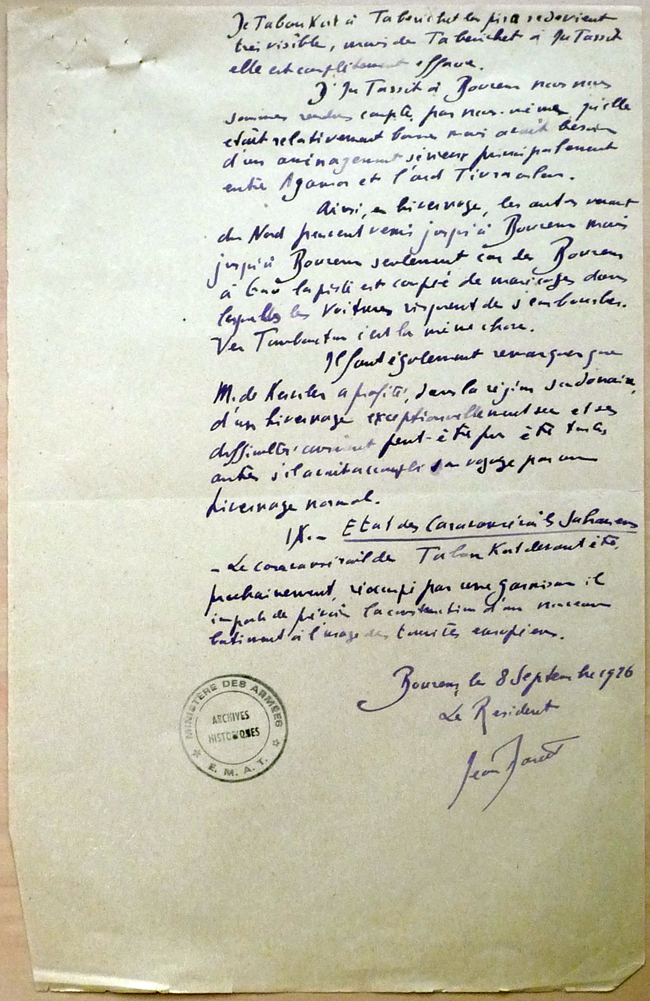 De Tabankort à Tabenchet la piste redevient
très visible, mais de Tabenchet à In Tassit
elle est complètement effacée.
D'In Tassit à Bourem nous nous
sommes rendus compte, par nous-mêmes, qu'elle
était relativement bonne mais avait besoin
d'un aménagement sérieux principalement
entre Agamor et l'oued
Ainsi, en hivernage, les autos venant
du Nord peuvent venir jusqu'à Bourem mais
jusqu'à Bourem seulement car de Bourem
à Gao la piste est coupée de marécages dans
lesquels les voitures risquent de s'embourber.
Vers Tombouctou c'est la même chose.
Il faut également remarquer que
M. de a profité, dans la région soudanaise,
d'un hivernage exceptionnellement sec et ses
difficultés auraient peut-être pu être tout
autres s'il avait accompli son voyage par un
hivernage normal.
IX.- Etat des Caravansérails Sahariens
- Le caravansérail de Tabankort devant être,
prochainement, réoccupé par une garnison il
importe de prévoir la construction d'un nouveau
batiment à l'usage des touristes européens.
Bourem, le 8 Septembre 1926
Le Resident
Jean
MINISTÈRE DES ARMÉES
ARCHIVES
HISTORIQUES
E. M. A. T.